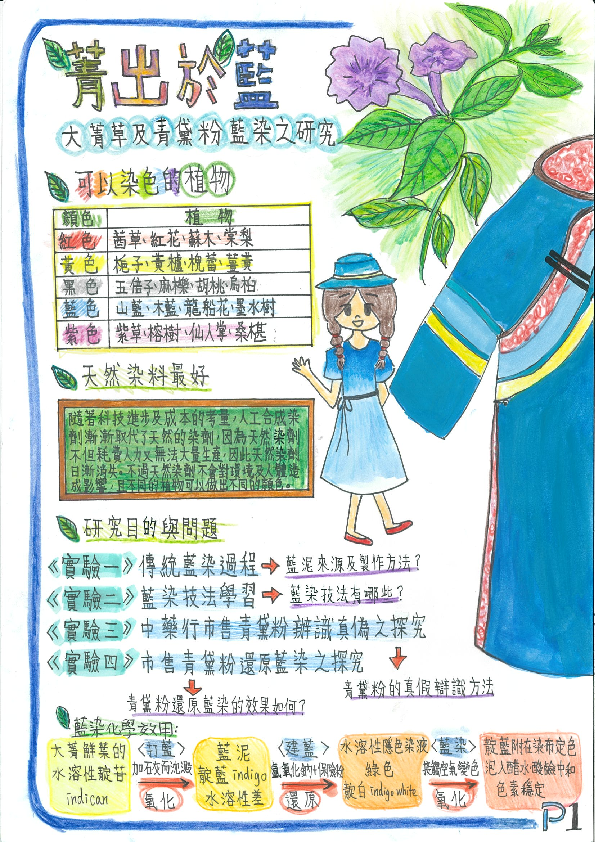 菁出於藍
大菁草及青黛粉藍染之研究
可以染色的植物
顏色 植物
紅色 茜草、紅花、蘇木、棠梨
黃色 梔子、黃櫨、槐蕾、薑黃
黑色 五倍子、麻櫟、胡桃、烏桕
藍色 山藍、木藍、龍船花、墨水樹
紫色 紫草、榕樹、仙人掌、桑椹
天然染料最好
隨著科技進步及成本的考量,人工合成染
劑漸漸取代了天然的染劑,因為天然染劑
不但耗費人力又無法大量生產,因此天然染劑
日漸消失。不過天然染劑不會對環境及人體造
成影響,且不同的植物可以做出不同的顏色。
研究目的與問題
《實驗一》傳統藍染過程 → 藍泥來源及製作方法?
《實驗二》藍染技法學習 → 藍染技法有哪些?
《實驗三》中藥行市售青黛粉辨識真偽之探究
《實驗四》市售青黛粉還原藍染之探究
青黛粉的真假辯識方法
青黛粉還原藍染的效果如何?
藍染化學效用:
大菁鮮葉的
水溶性靛苷
indican
<打藍>
加石灰而沉澱
氧化
藍泥
靛藍indigo
水溶性差
<建藍>
還原
水溶性隱色染液
綠色
靛白indigo white
<藍染>
接觸空氣變色
氧化
靛藍附在染布定色
泥入醋水酸鹼中和
色素穩定
P1